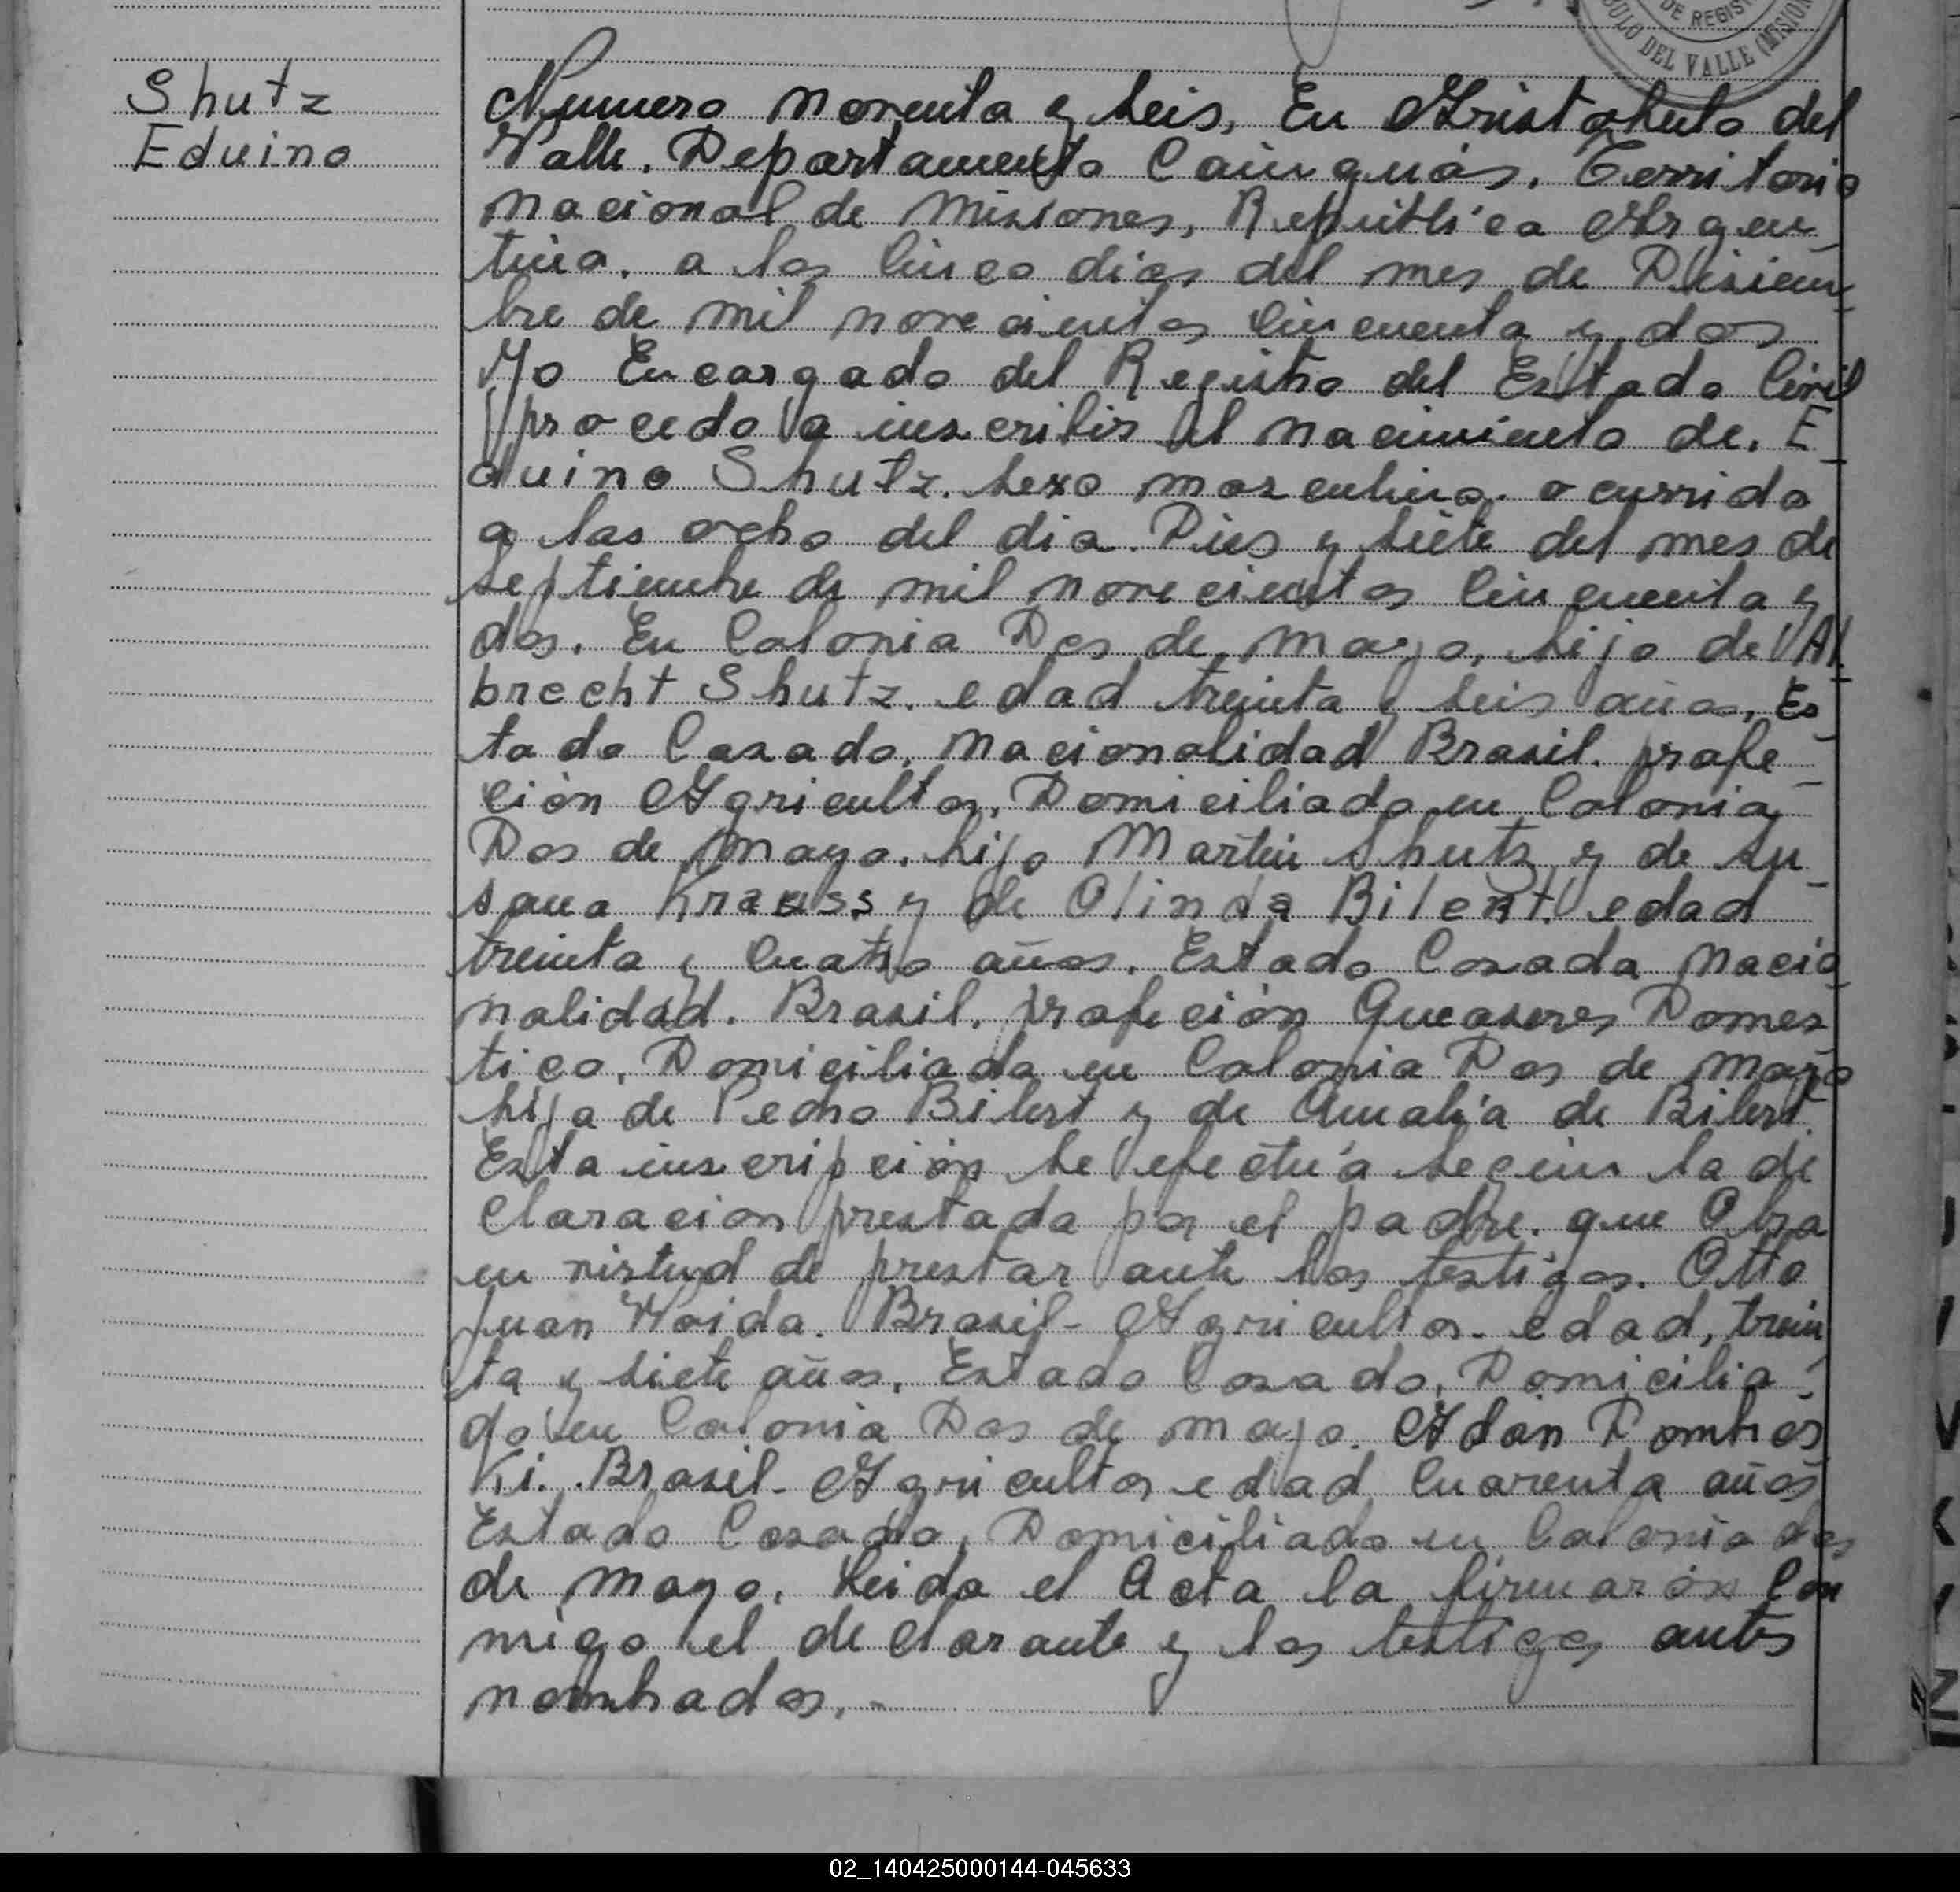 DE REGIST
ULO DEL VALLE (MISION
Shutz
Eduino
Numero noventa y seis, En Aristobulo del
Valle. Departamento Cainguás. Territorio
nacional de misiones, República Argen
tina. a los cinco dias del mes de Disiem
bre de mil novecientos cincuenta y dos
Yo Encargado del Registro del Estado Civil
procedo a inscribir el nacimiento de. E
duino Shutz. sexo masculino. ocurrido
a las ocho del dia. Dies y siete del mes de
septiembre de mil novecientos cincuenta y
dos. En Colonia Dos de mayo, hijo de Al
brecht Shutz. edad treinta y seis años, Es
tado Casado. nacionalidad Brasil. profe
ción Agricultor. Domiciliado en Colonia
Dos de mayo. hijo Martin Shutz y de Su
sana Krauss y de Olinda Bilert. edad
treinta y cuatro años. Estado Casada nacio
nalidad. Brasil. profeción Queaseres Domes
tico. Domiciliada en Colonia Dos de mayo
hija de Pedro Bilert y de Amalia de Bilert.
Esta inscripción se efectúa según la de
claracion prestada por el padre. que Obra
en virtud de prestar ante los testigos. Otto
Juan Woida. Brasil- Agricultor- edad, trein
ta y siete años. Estado Casado. Domicilia
do en Colonia Dos de mayo. Adán Dombros
Ki. Brasil- Agricultor edad cuarenta años
Estado Casado, Domiciliado en Colonia dos
de mayo. Leida el Acta la firmarón con
migo el declarante y los testigos antes
nombrados.-
02_140425000144-045633